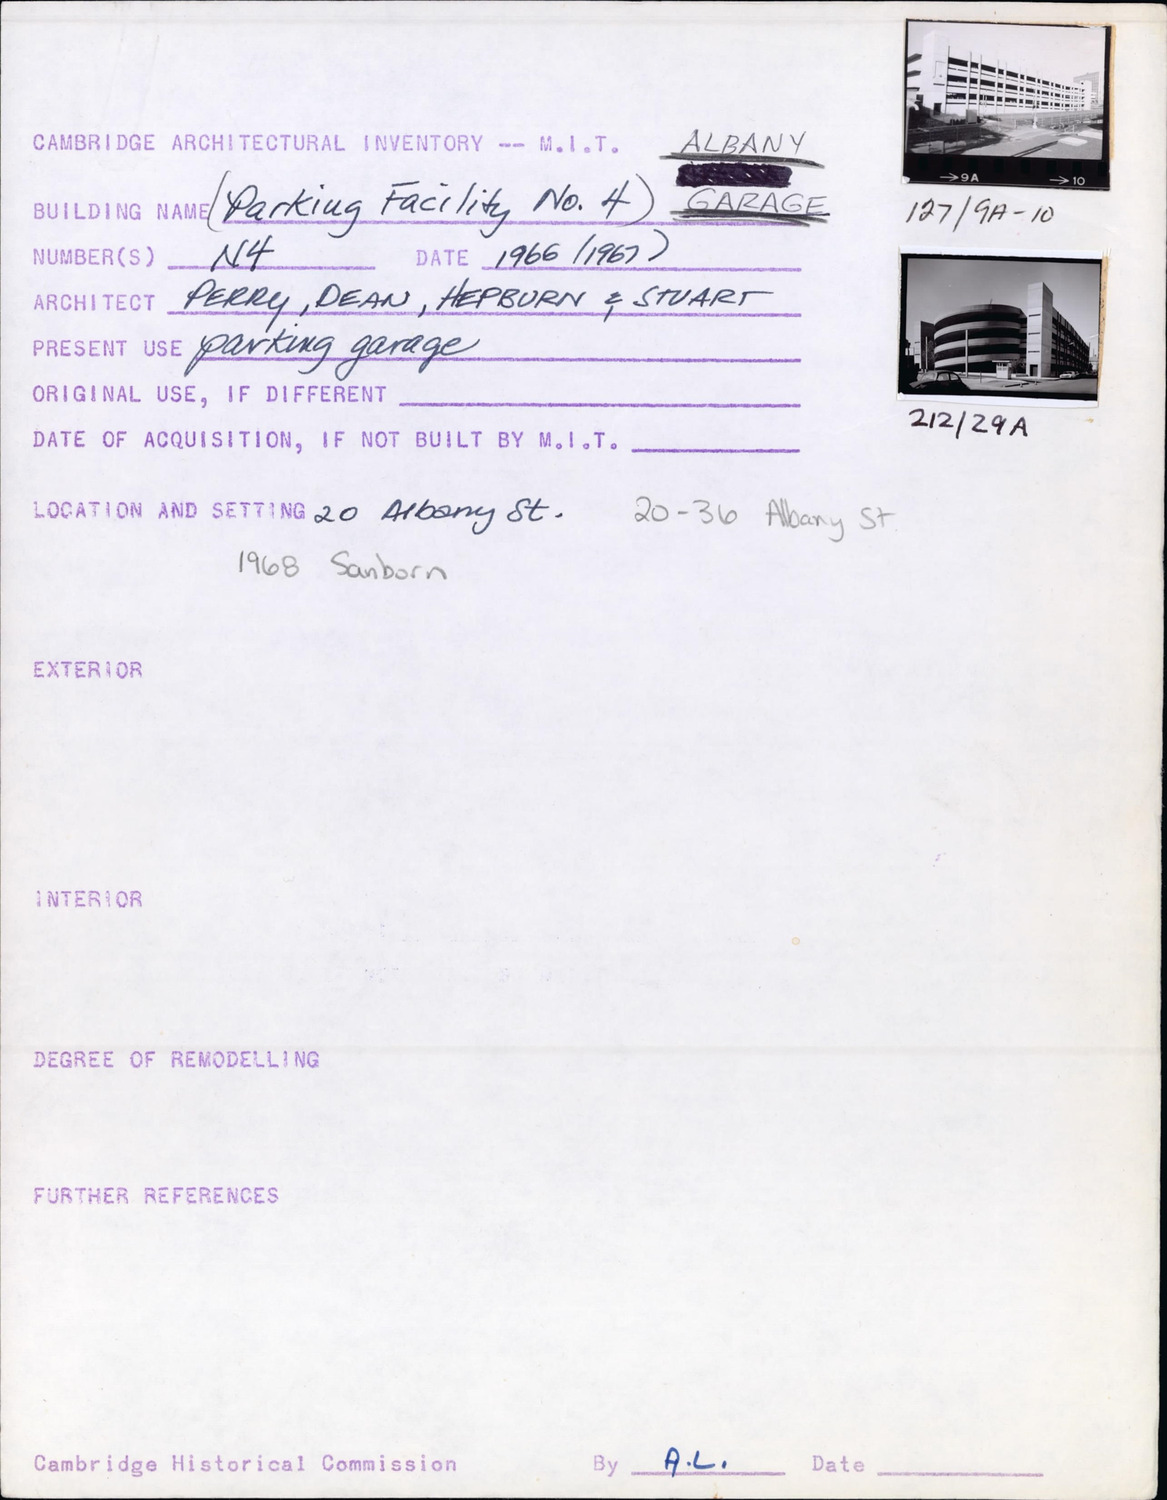 CAMBRIDGE ARCHITECTURAL INVENTORY -- M.I.T. ALBANY
BUILDING NAME (Parking Facility No. 4) GARAGE
NUMBER(S) N4 DATE 1966 (1967)
ARCHITECT PERRY, DEAN, HEPBURN & STUART
PRESENT USE parking garage
ORIGINAL USE, IF DIFFERENT
DATE OF ACQUISITION, IF NOT BUILT BY M.I.T.
LOCATION AND SETTING 20 Albany St. 20-36 Albany St
1968 Sanborn
EXTERIOR
INTERIOR
DEGREE OF REMODELLING
FURTHER REFERENCES
Cambridge Historical Commission By A.L. Date
→9A →10
127/9A-10
212/29A